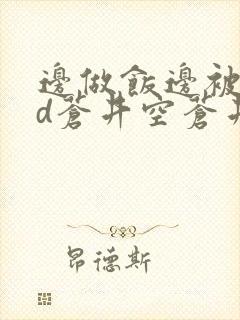 邊做飯邊被
d蒼井空蒼井
昂德斯